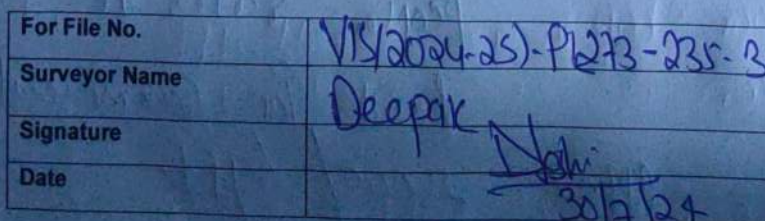 For File No. VIS(2024-25)-PL273-235-3
Surveyor Name Deepak
Signature
Date 30/7/24